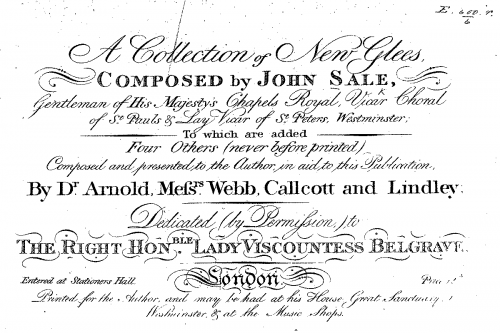 E. 600. r.
6
A Collection of New Glees,
COMPOSED by JOHN SALE,
Gentleman of His Majestys Chapels Royal, Vicar Choral
of St. Pauls & Lay Vicar of St. Peters, Westminster;
To which are added
Four Others (never before printed)
Composed and presented to the Author, in aid to this Publication,
By Dr. Arnold, Messrs. Webb, Callcott and Lindley.
Dedicated (by Permission,) to
THE RIGHT HON.BLE LADY VISCOUNTESS BELGRAVE.
Entered at Stationers Hall. London
Printed for the Author, and may be had at his House, Great
Westminster, & at the Music Shops.